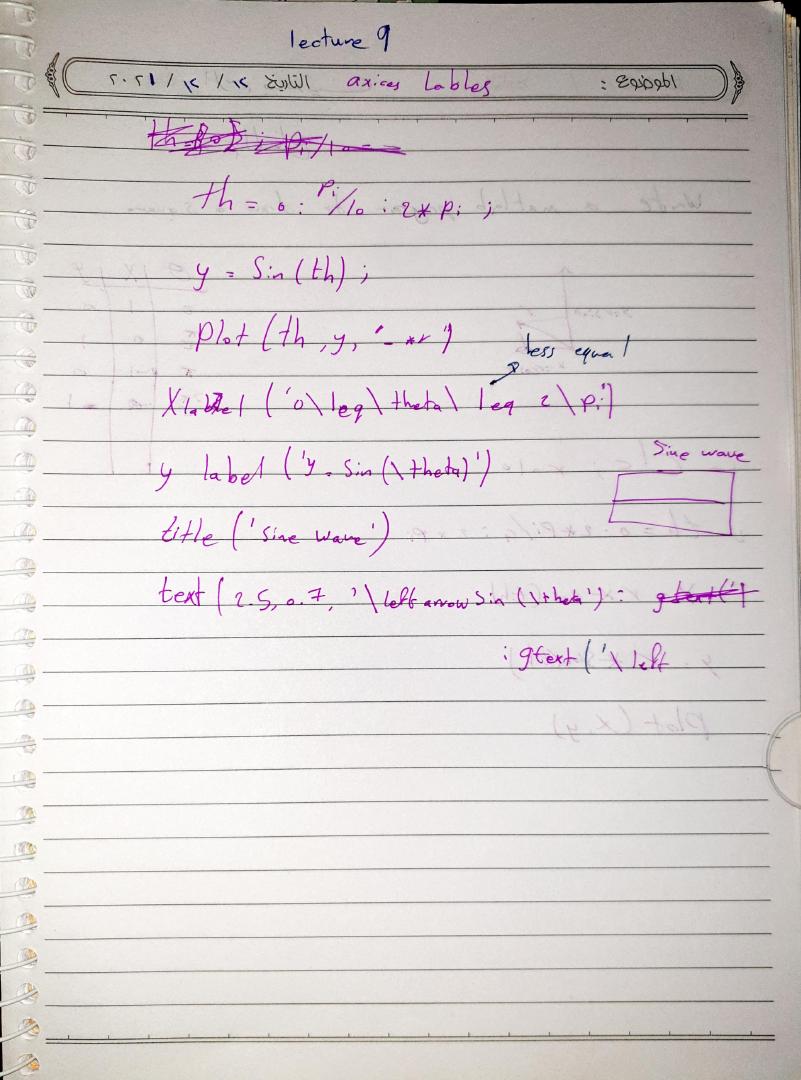 lecture 9
الموضوع : axices Lables التاريخ ١٢ / ١٢ / ٢٠٢١
th = 0 : Pi/10 : 2* Pi ;
y = Sin (th) ;
Plot (th , y, '-*r')
less equal
Xlabel ('0\leq\theta\ leq 2 \pi')
Sine wave
y label ('y = Sin (\theta)')
title ('Sine wave')
text ( 2.5, 0.7, '\left arrow Sin (\theta') :
: gtext ('\ left